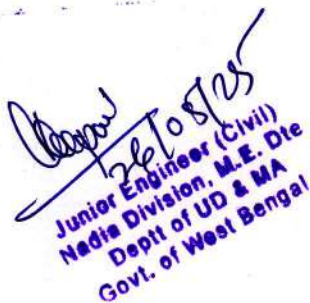 26/08/25
Junior Engineer (Civil)
Nadia Division, M.E. Dte
Deptt of UD & MA
Govt. of West Bengal